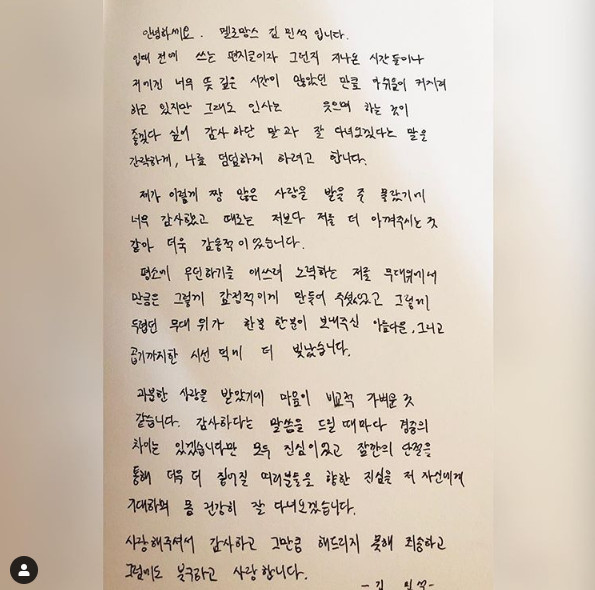 안녕하세요. 멜로망스 김민석 입니다.
입대 전에 쓰는 편지글이라 그런지 지나온 시간들이나
지켜진 너무 뜻 깊은 시간이 많았던 만큼 아쉬움이 커지려
하고 있지만 그래도 인사는 웃으며 하는 것이
좋겠다 싶어 감사하단 말과 잘 다녀오겠다는 말을
간략하게, 나름 덤덤하게 하려고 합니다.
제가 이렇게 짱 많은 사랑을 받을 줄 몰랐기에
너무 감사했고 때로는 저보다 저를 더 아껴주시는 것
같아 더욱 감동적이었습니다.
평소에 무던하기를 애쓰려 노력하는 저를 무대위에서
만큼은 그렇게 감정적이게 만들어 주셨었고 그렇게
두렵던 무대 위가 한분 한분이 보내주신 아름다운, 그리고
곱기까지한 시선 덕에 더 빛났습니다.
과분한 사랑을 받았기에 마음이 비교적 가벼운 것
같습니다. 감사하다는 말씀을 드릴 때마다 경중의
차이는 있겠습니다만 모두 진심이었고 잠깐의 단절을
통해 더욱 더 짙어질 여러분들을 향한 진심을 저 자신에게
기대하며 몸 건강히 잘 다녀오겠습니다.
사랑해주셔서 감사하고 그만큼 해드리지 못해 죄송하고
그럼에도 불구하고 사랑합니다.
- 김 민석 -